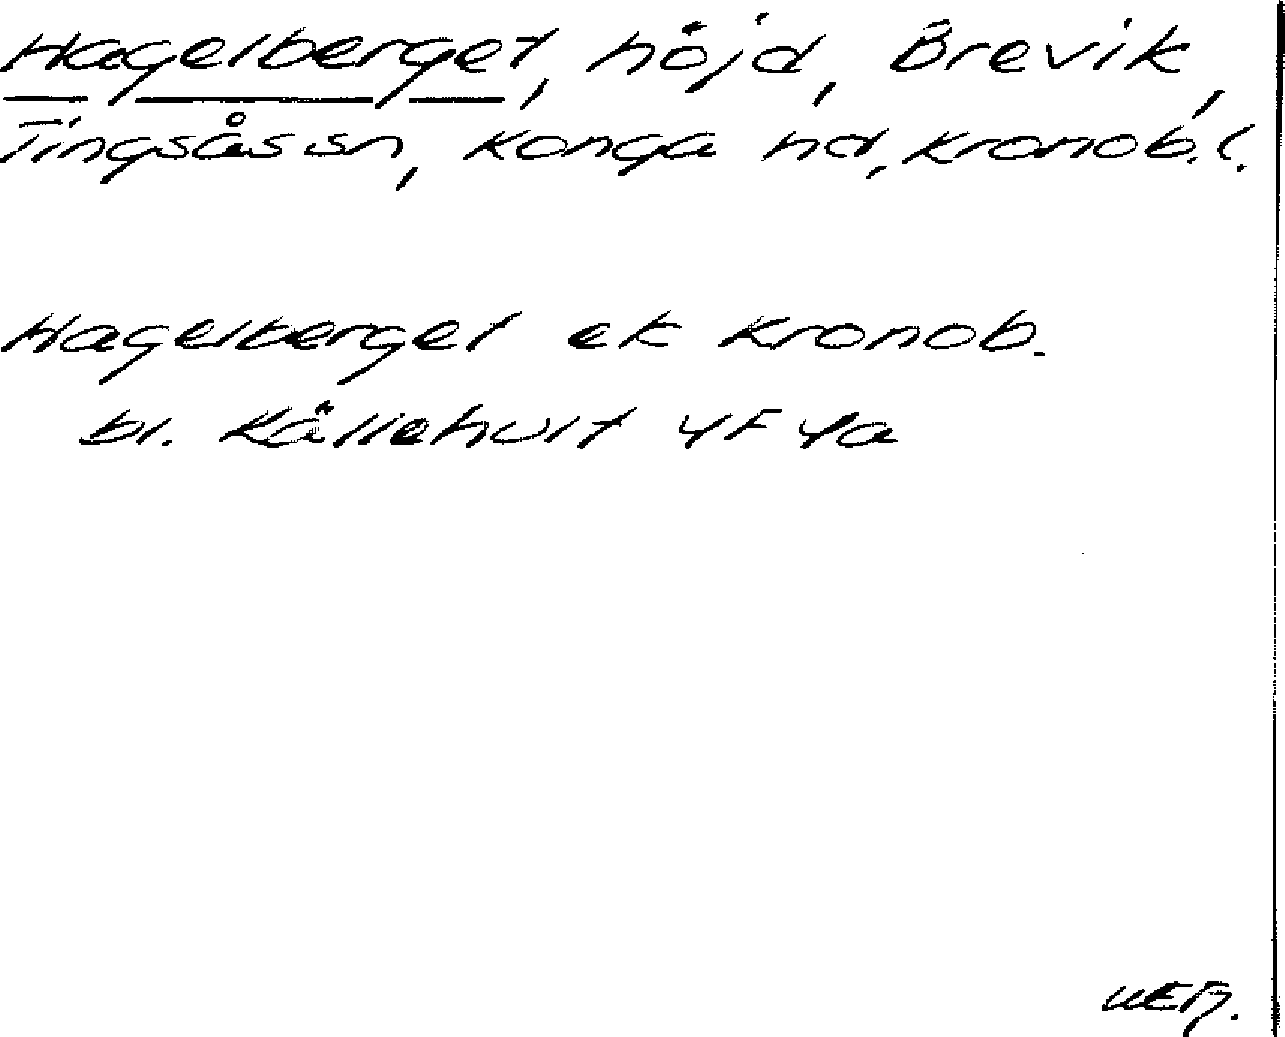 Hagelberget, höjd, Brevik,
Tingsås sn, Konga hd, Kronob. l.
Hagelberget ek Kronob.
bl. Källehult 4F 4a